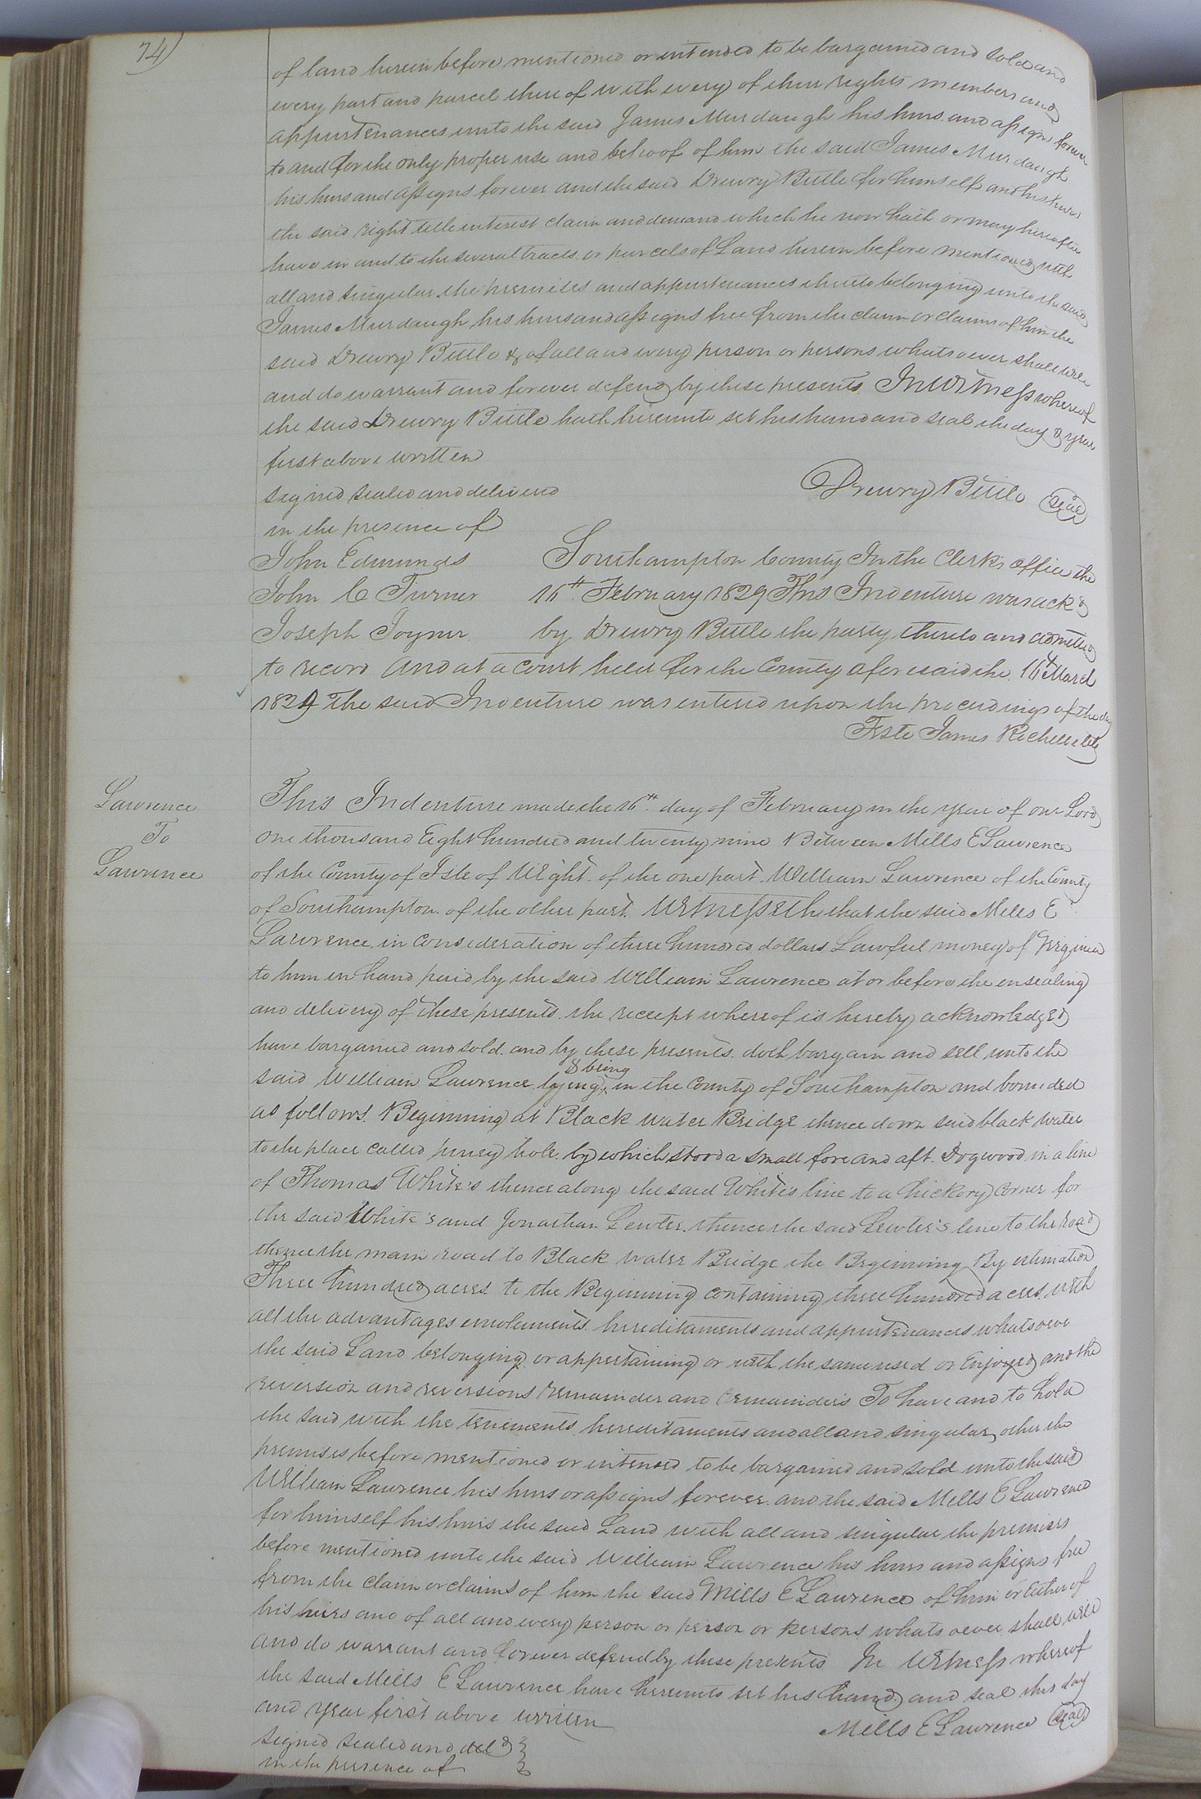 74)
of land herein before mentioned or intended to be bargained and sold and
every part and parcel thereof with every of their rights members and
appurtenances unto the said James Murdaugh his heirs and assigns forever
to and for the only proper use and behoof of him the said James Murdaugh
his heirs and assigns forever and the said Drewry Bittle for himself and his heirs
the said right title interest claim and demand which he now hath or may hereafter
have in and to the several tracts or parcels of Land herein before mentioned with
all and singular the premises and appurtenances thereto belonging unto the said
James Murdaugh his heirs and assigns free from the claim or claims of him the
said Drewry Bittle & of all and every person or persons whatsoever shall will
and do warrant and forever defend by these presents In Witness whereof
the said Drewry Bittle hath hereunto set his hand and seal the day & year
first above written
signed sealed and delivered
Drewry Bittle seal
in the presence of
John Edmunds
John C Turner
Joseph Joyner
Southampton County In the Clerks office the
16th February 1829 This Indenture was ackd
by Drewry Bittle the party thereto and admitted
to record And at a court held for the County aforesaid the 16th March
1829 The said Indenture was entered upon the proceedings of the day
Teste James Rochelle clk
Lawrence
To
Lawrence
This Indenture made the 16th day of February in the year of our Lord
one thousand Eight hundred and twenty nine Between Mills E Lawrence
of the County of Isle of Wight of the one part William Lawrence of the County
of Southampton of the other part Witnesseth that the said Mills E
Lawrence in consideration of three hundred dollars Lawful money of Virginia
to him in hand paid by the said William Lawrence at or before the ensealing
and delivery of these presents the receipt whereof is hereby acknowledged
have bargained and sold and by these presents doth bargain and sell unto the
said William Lawrence lying & being in the County of Southampton and bounded
as follows Beginning at Black water Bridge thence down said black water
to the place called hole by which stood a small fore and aft Dogwood in a line
of Thomas White's thence along the said White's line to a hickory corner for
the said White's and Jonathan Lewter thence the said Lewter's line to the road
thence the main road to Black water Bridge the Beginning By estimation
Three hundred acres to the Beginning containing three hundred acres with
all the advantages emoluments hereditaments and appurtenances whatsoever
the said Land belonging or appertaining or with the same used or Enjoyed and the
reversion and reversions remainder and remainders To have and to hold
the said with the tenements hereditaments and all and singular other the
premises before mentioned or intened to be bargained and sold unto the said
William Lawrence his heirs or assigns forever and the said Mills E Lawrence
for himself his heirs the said Land with all and singular the premises
before mentioned unto the said William Lawrence his heirs and assigns free
from the claim or claims of him the said Mills E Lawrence of him or Either of
his heirs and of all and every person or person or persons whatsoever shall will
and do warrant and forever defend by these presents In Witness whereof
the said Mills E Lawrence have hereunto set his hand and seal this day
and year first above written
Mills E Lawrence seal
signed sealed and deld
in the presence of